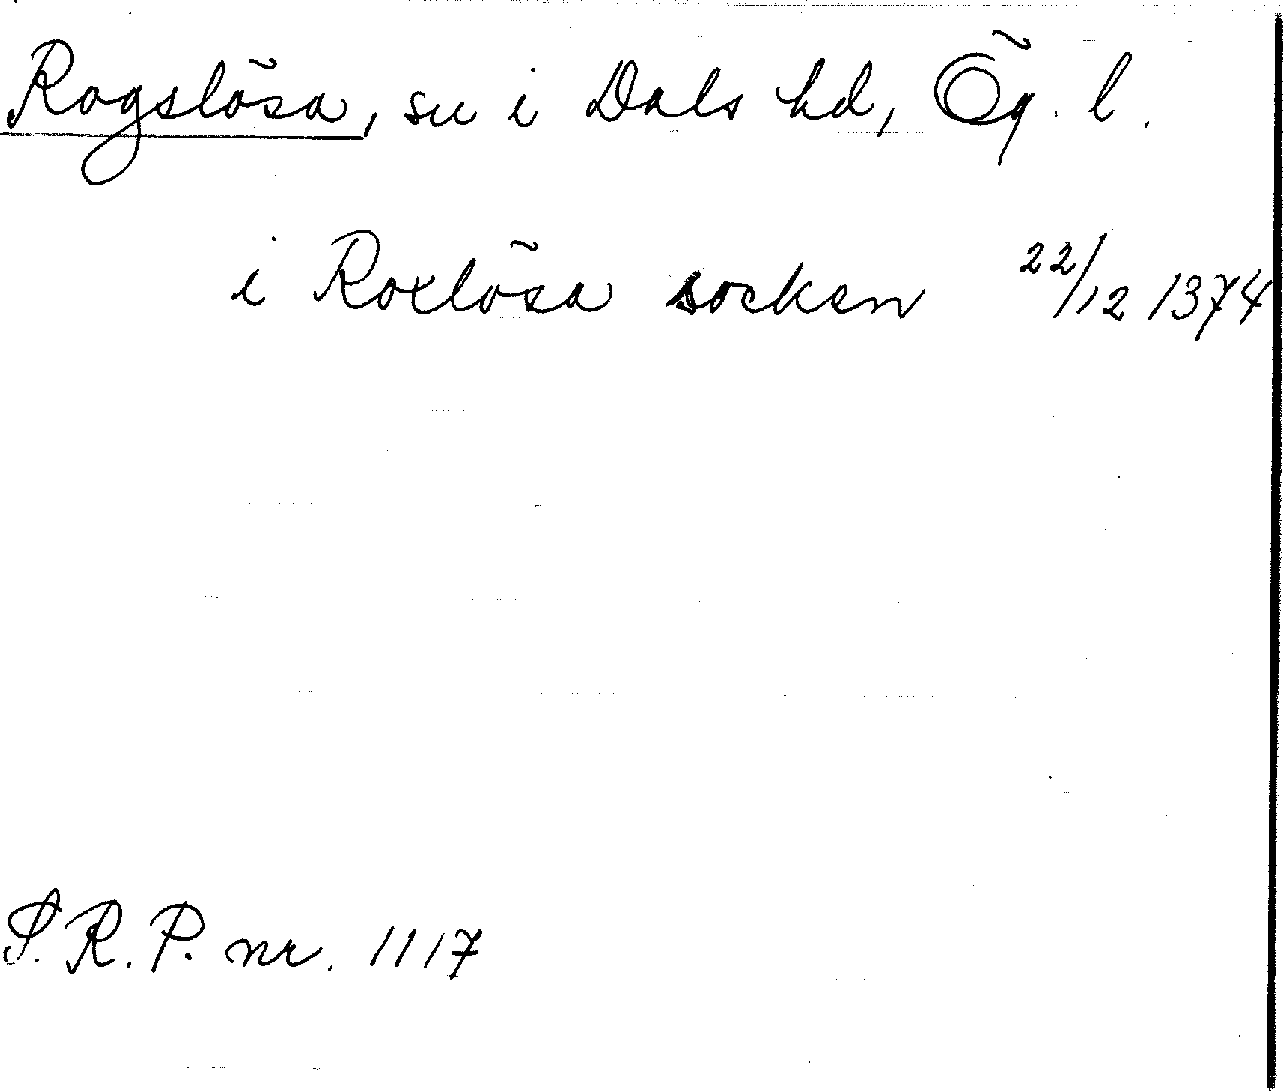 Rogslösa, sn i Dals hd, Ög. l.
i Roxlösa socken 22/12 1374
S.R.P. nr. 1117